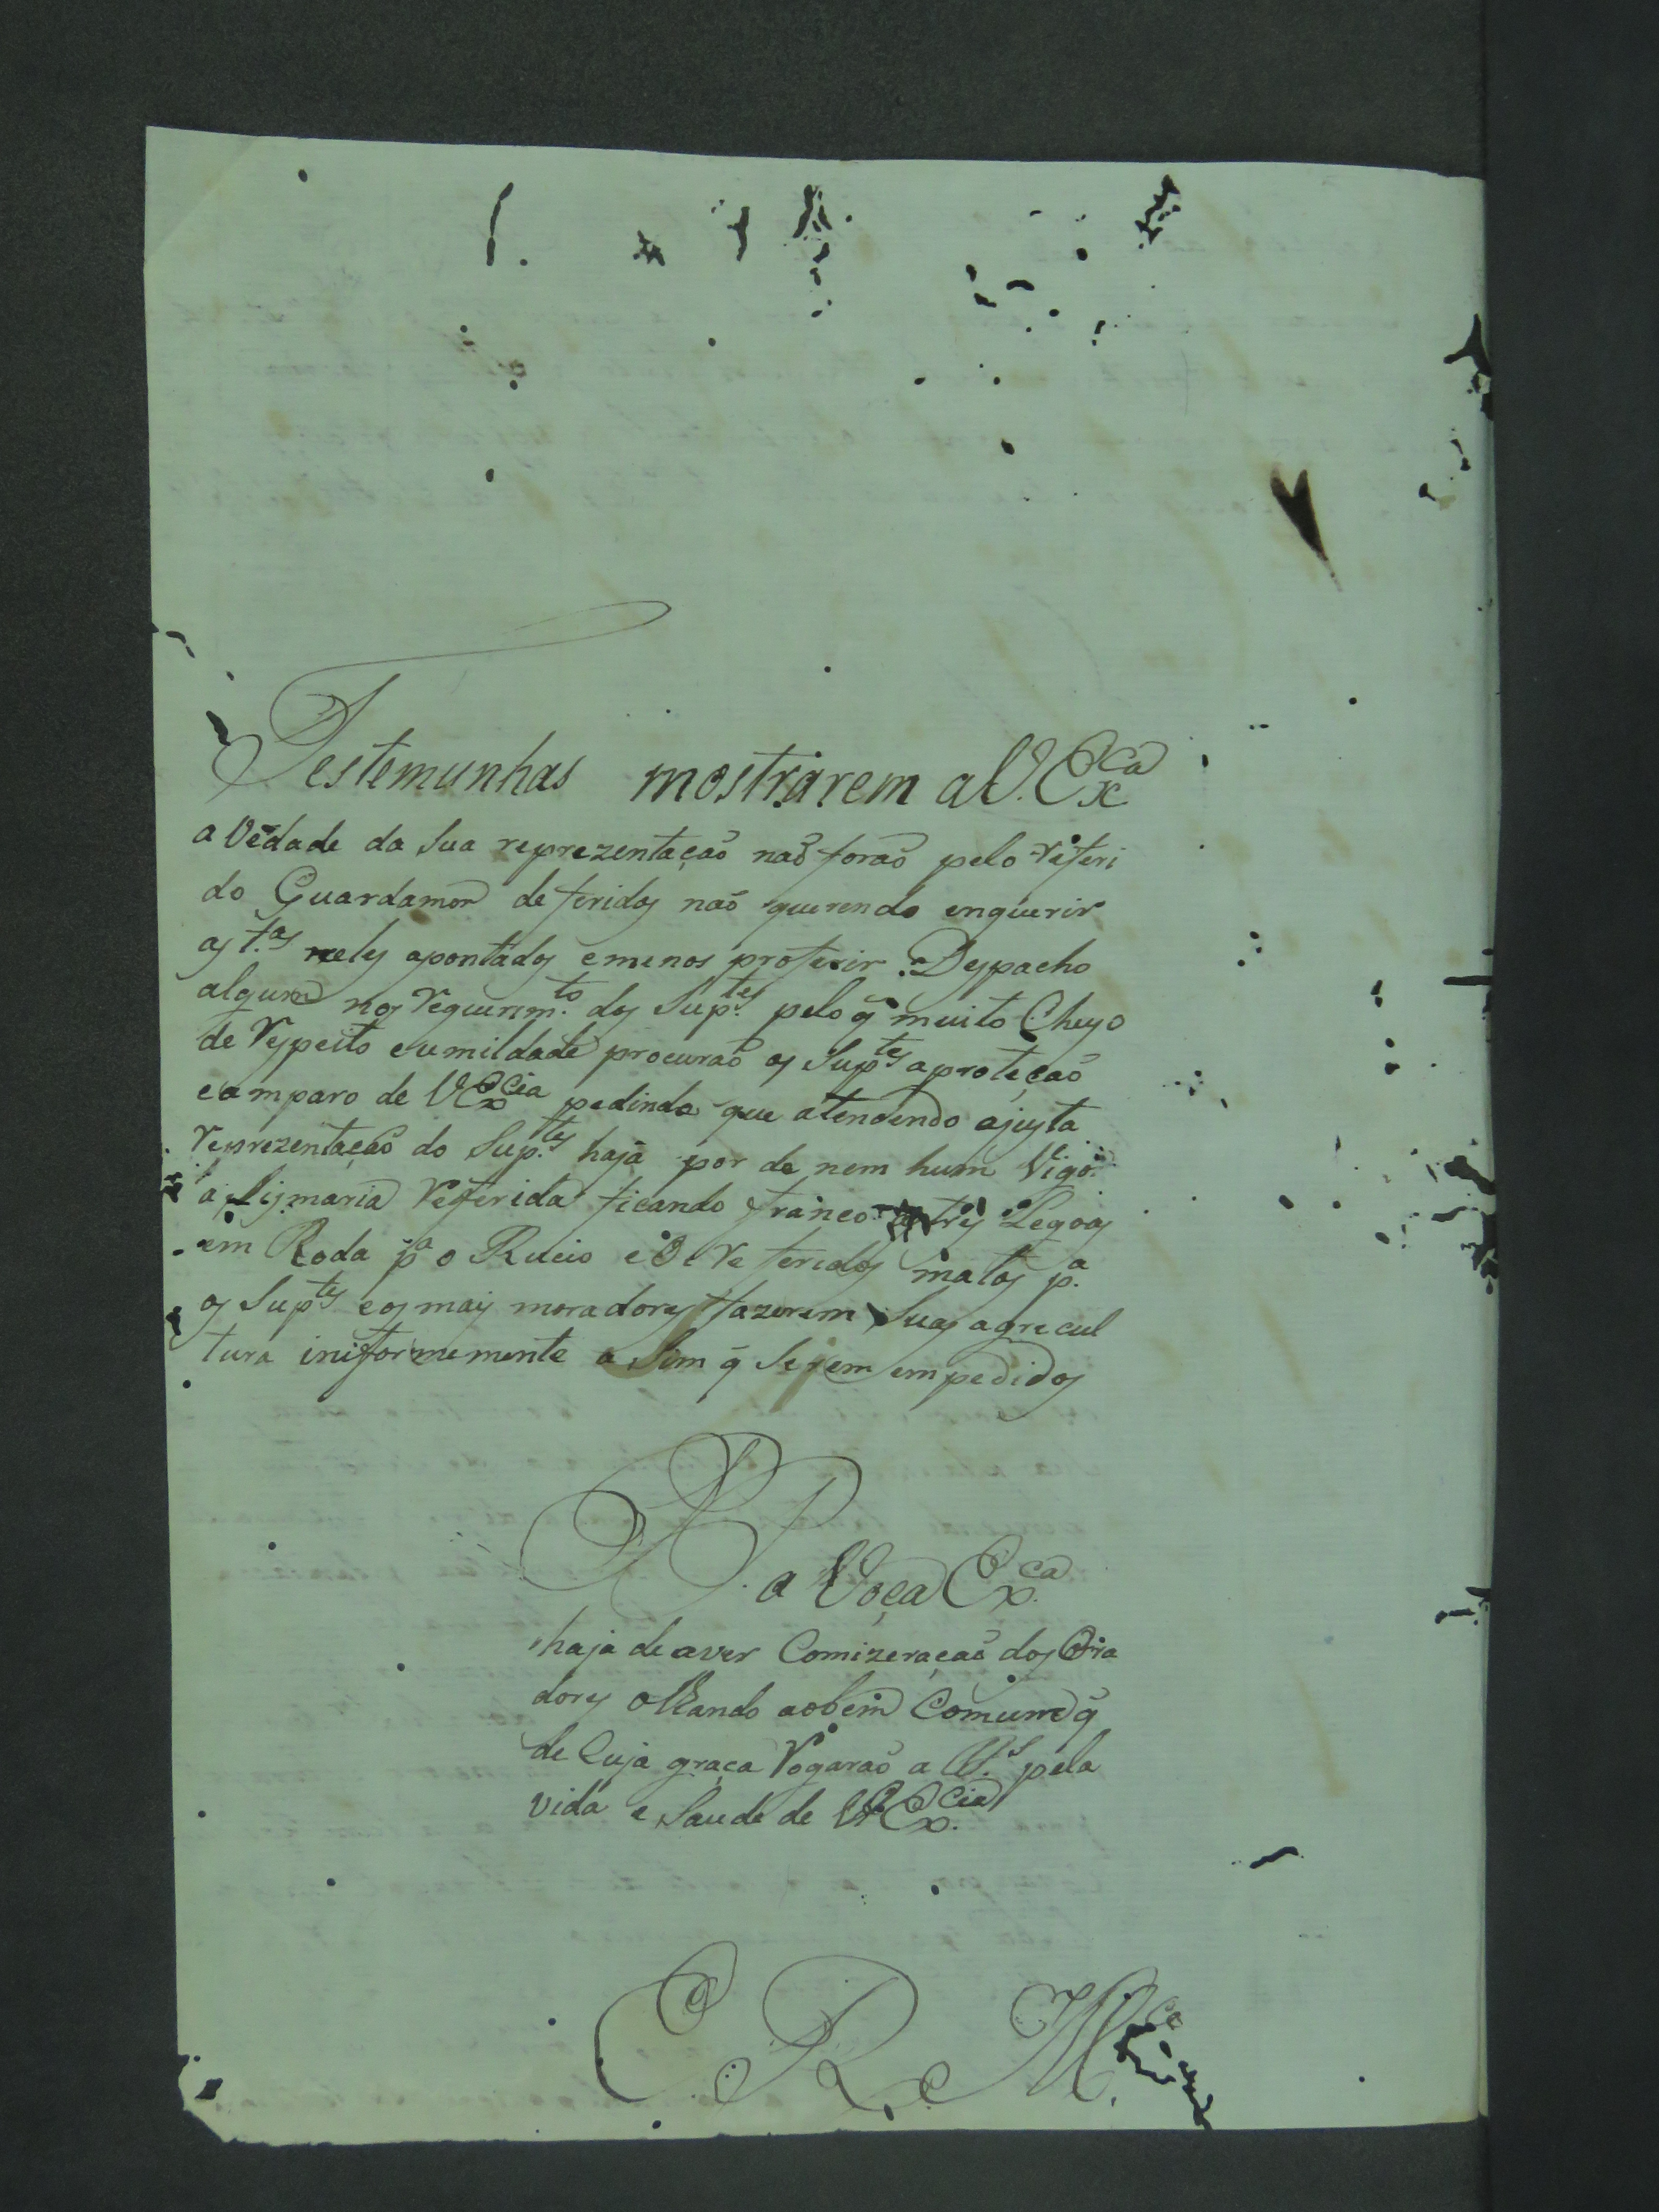 Testemunhas mostrarem a V. Ex.ca
a Vědade da Sua reprezentação não forão pelo referi
do Guardamor deferidos não querendo enquerir
as t.as neles apontados e menos proferir Despacho
algum nos requerim.to dos Sup.tes pelo q̃ muito Cheyo
de respeito e umildade procurão os Sup.tes a proteção
e amparo de V Ex.cia pedindo que atendendo a justa
reprezentação do Sup.tes haja por de nem hum Vigor
a Sismaria referida ficando franco tres Legoas
em Roda p.a o Rucio e os referidos matos p.a
os Sup.tes e os mais moradores fazerem Suas agrecul
tura iniformemente a Sim q̃ Serem empedidos
P. a Voça Ex.ca
haja de aver Comizeração dos Ora
dores olhando ao bem Comum q̃
de Cuja graça rogarão a D.s pela
vida e Saude de V. Ex.cia
E R M.ce